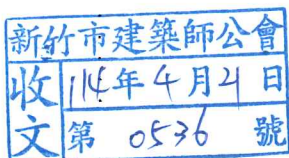 新竹市建築師公會
收文
114年4月21日
第 0536 號